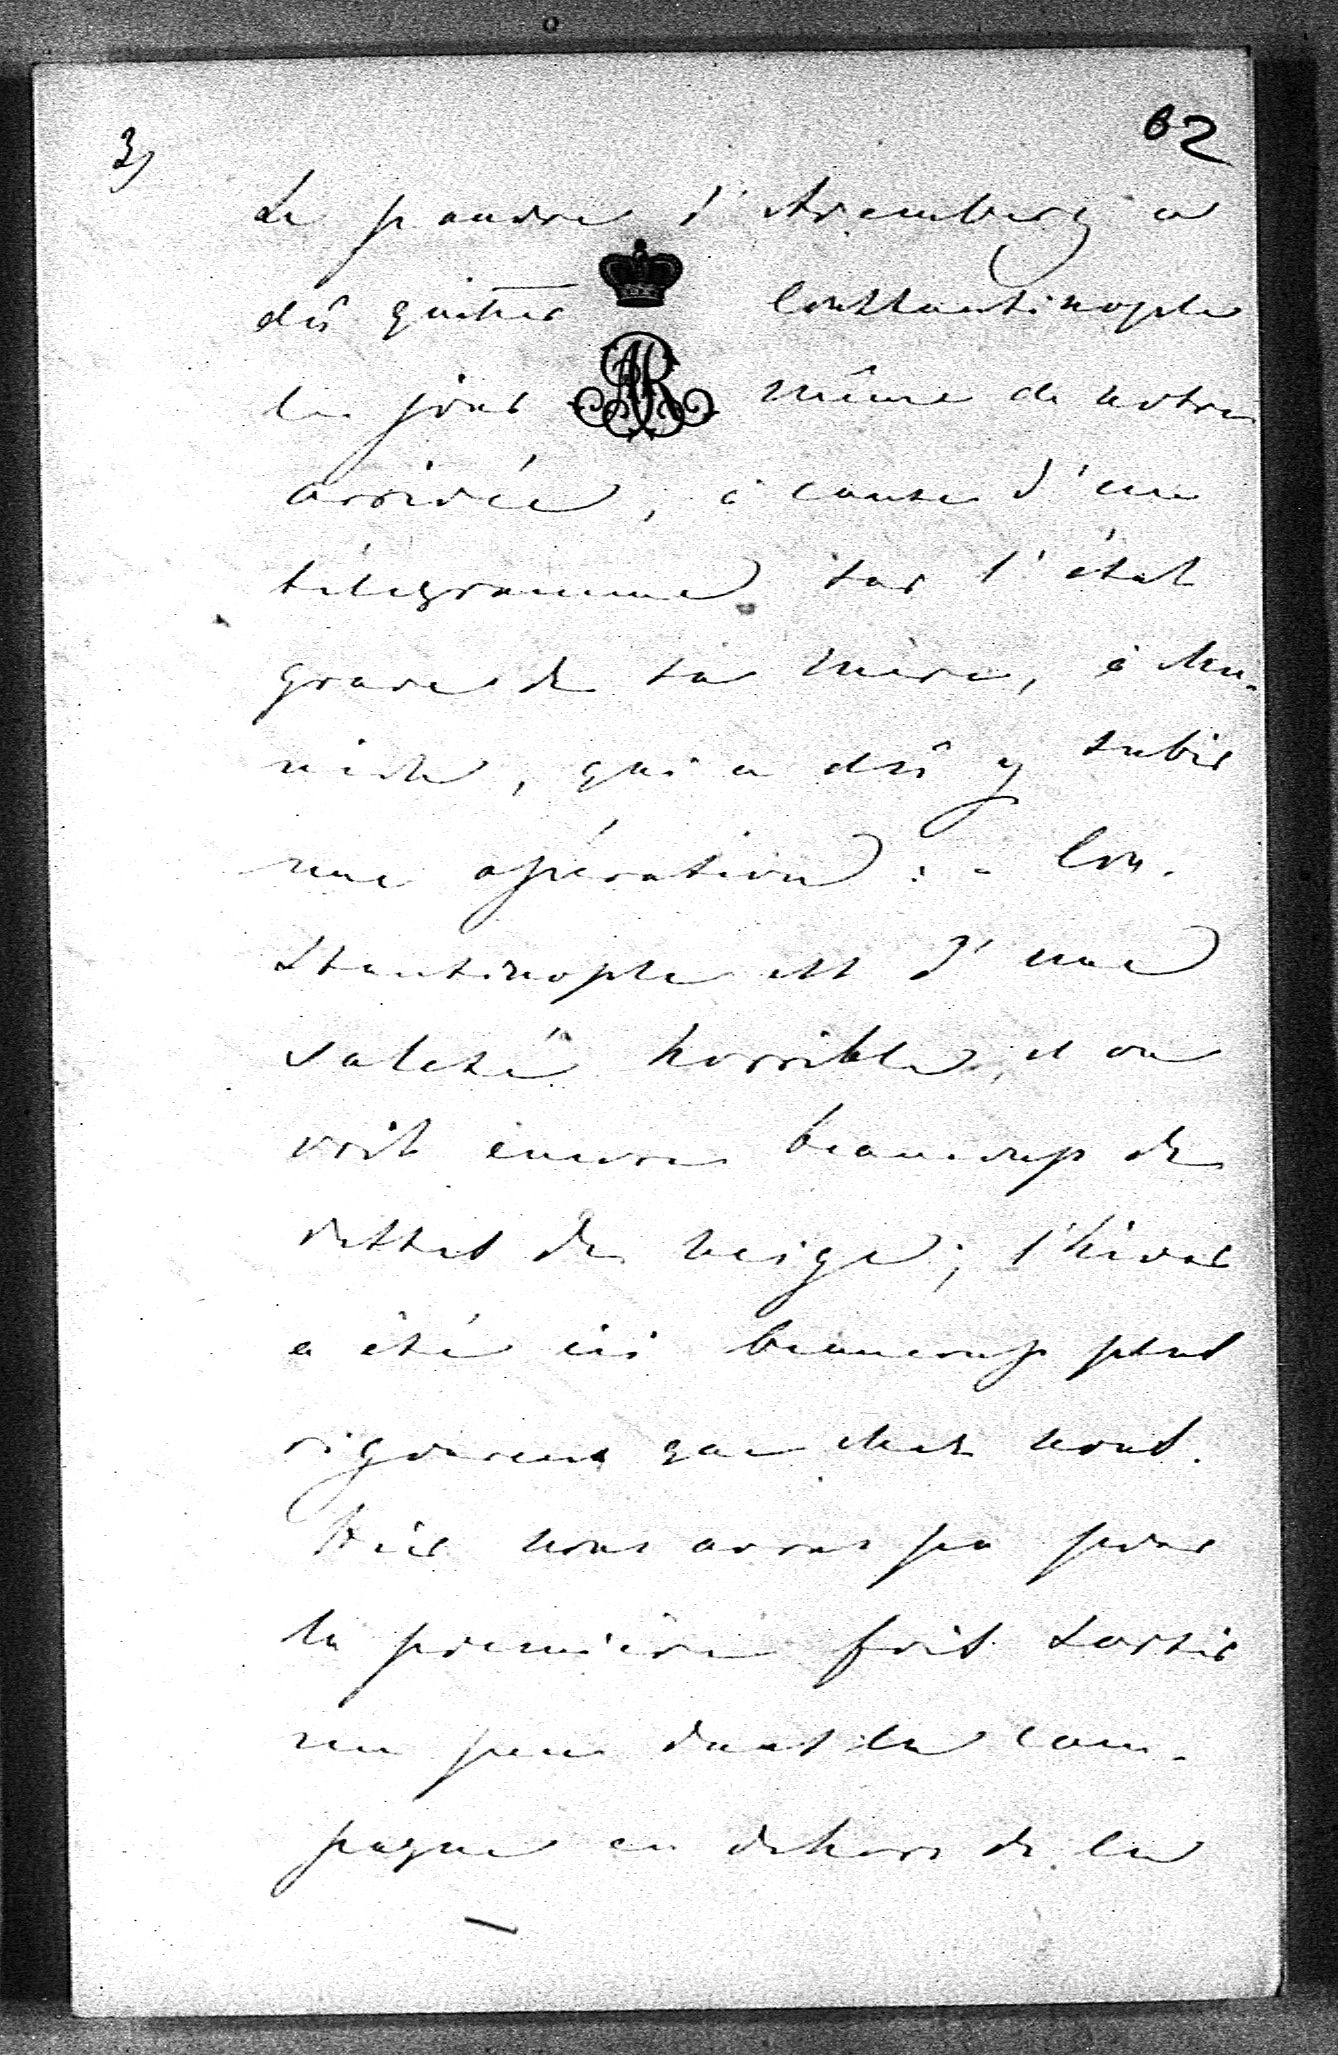 3) 62
Le pauvre d'Aremberg a
dû quitter Constantinople
le jour AR même de notre
arrivée, à cause d'un
télégramme sur l'état
grave de sa mère, à Mu-
nich, qui a dû y subir
une opération. - Con-
stantinople est d'une
saleté horrible, et on
voit encore beaucoup de
restes de neige; l'hiver
a été ici beaucoup plus
rigoureux que chez nous.
Hier nous avons pu pour
la première fois sortir
un peu dans la cam-
pagne en dehors de la